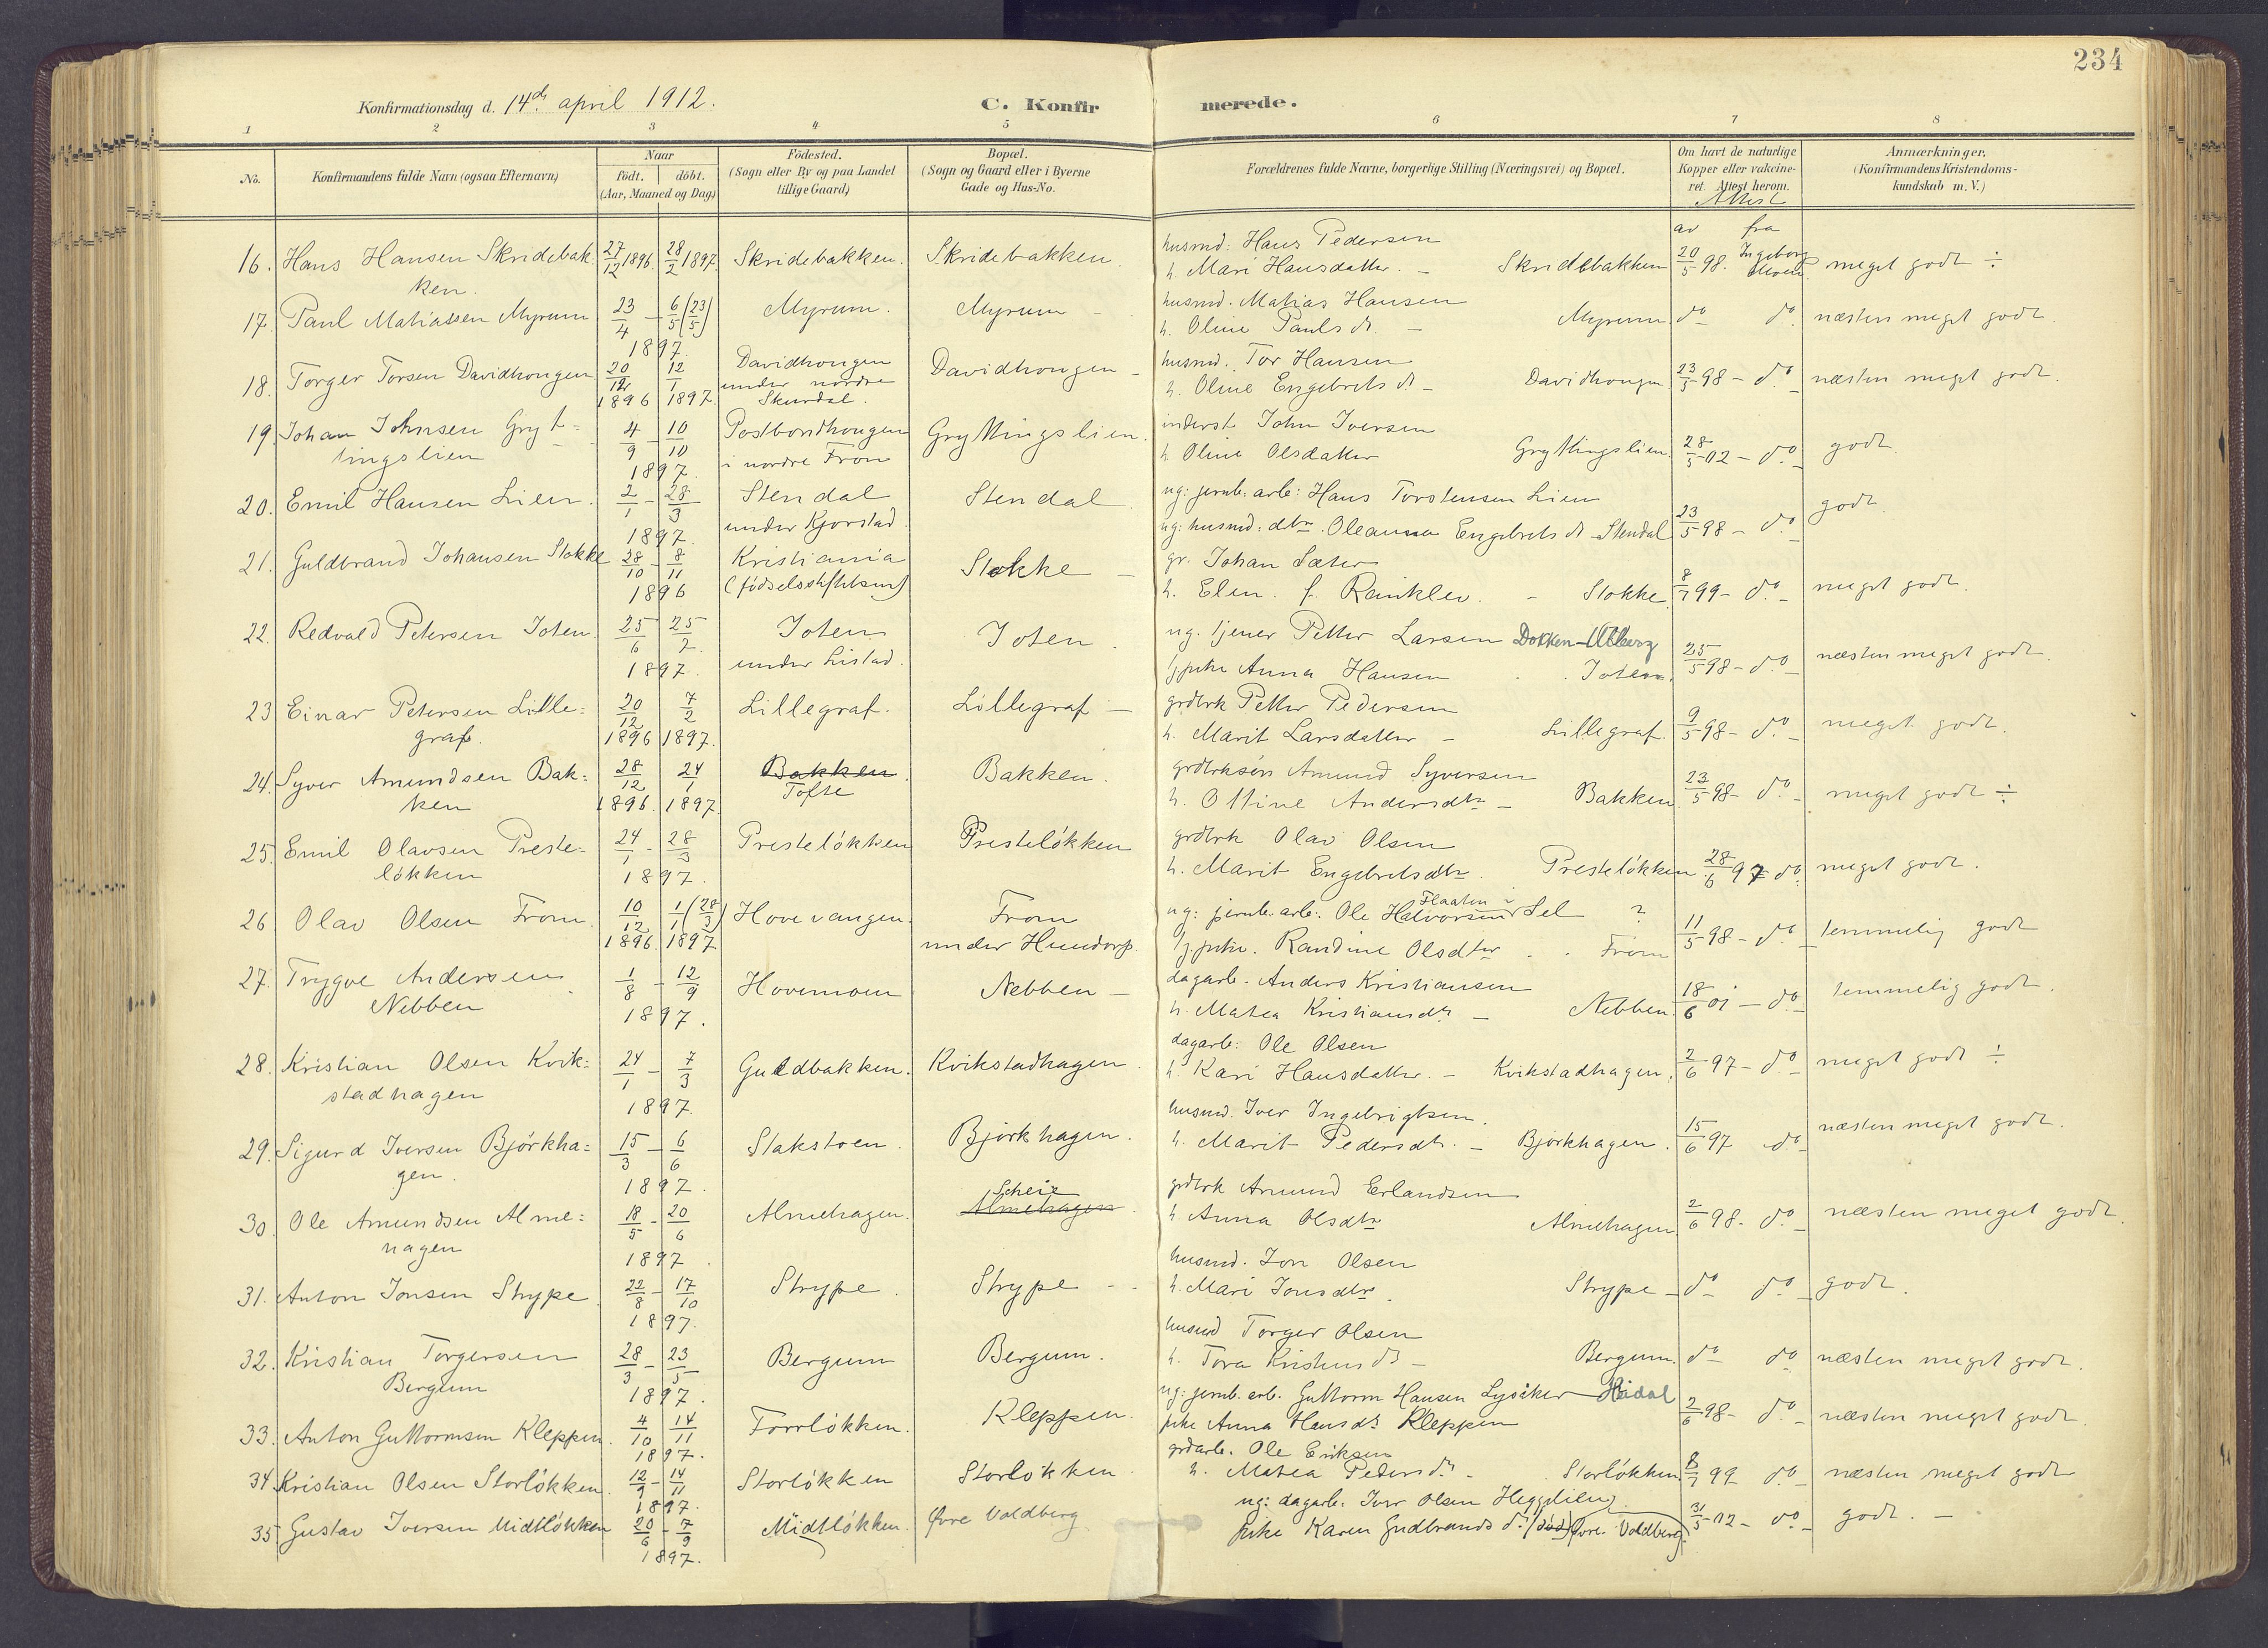 234
Konfirmationsdag d. 14de april 1912.
C. Konfirmerede.
1 2 3 4 5 6 7 8
No.
Konfirmandens fulde Navn (ogsaa Efternavn)
Naar
födt. döbt.
(Aar, Maaned og Dag)
Födested.
(Sogn eller By og paa Landet
tillige Gaard)
Bopæl.
(Sogn og Gaard eller i Byerne
Gade og Hus-No.
Forældrenes fulde Navne, borgerlige Stilling (Næringsvei) og Bopæl.
Om havt de naturlige
Kopper eller vakcine-
ret. Attest herom.
Attest
av fra
Anmærkninger.
(Konfirmandens Kristendoms-
kundskab m. V.)
16. Hans Hansen Skridebakken. 27/12 1896. 28/2 1897. Skridebakken. Skridebakken.
husmd: Hans Pedersen
h. Mari Hansdatter. – Skridebakken 20/5 98. Ingeborg Moen meget godt ÷
17. Paul Matiassen Myrum 23/4 – 6/5 (23/5) 1897. Myrum. Myrum –
husmd. Matias Hansen
h. Oline Pauls dt. – Myrum do do. næsten meget godt.
18. Torger Torsen Davidhougen 20/12 1896 12/1 1897. Davidhougen under nordre Skurdal. Davidhougen –
husmd. Tor Hansen
h. Oline Engebrets dt – Davidhougen 23/5 98 – do næsten meget godt.
19. Johan Johnsen Gryttingslien 4/9 – 10/10 1897. Postbondhougen i nordre Fron Gryttingslien.
inderst John Iversen
h. Oline Olsdatter Gryttingslien. 28/5 02 – do godt
20. Emil Hansen Lien. 2/1 – 28/3 1897. Stendal under Kjorstad. Stendal
ug: jernb. arb: Hans Torstensen Lien
ug: husmd: dtr. Oleanna Engebrets dt – Stendal 23/5 98 – do godt.
21. Guldbrand Johansen Stokke 28/10 – 8/11 1896 Kristiania (födselsstiftelsen) Stokke –
gr. Johan Sæter
h. Elen. f. Rinklev. – Stokke. 8/7 99 – do. meget godt.
22. Redvald Petersen Joten. 25/6 25/7 1897. Joten under Listad. Joten.
ug. tjener Petter Larsen Dokken –
tj pike Anna Hansen Joten. 25/5 98 – do næsten meget godt.
23 Einar Petersen Lillegraf. 20/12 1896 7/2 1897. Lillegraf. Lillegraf –
grdbrk Petter Pedersen
h. Marit Larsdatter – Lillegraf. 9/5 98 – do meget godt.
24. Syver Amundsen Bakken 28/12 1896. 24/1 1897 Bakken. Tofte Bakken.
grdbrksön Amund Syversen
h. Ottine Andersdtr – Bakken. 23/5 98 – do meget godt ÷
25. Emil Olavsen Presteløkken 24/1 – 28/3 1897. Presteløkken Presteløkken
grdbrk Olav Olsen
h. Marit Engebretsdtr. Presteløkken 28/6 97 do meget godt.
26 Olav Olsen From. 10/12 1896. 1/1 (28/3) 1897 Hovevangen. From under Hundorp.
ug: jernb. arb: Ole Halvorsen Flaaten i Sel ?
tj. pike. Randine Olsdtr . . From 11/5 98 – do temmelig godt
27. Trygve Andersen Nebben 1/8 – 12/9 1897. Hovemoen Nebben –
dagarb. Anders Kristiansen
h. Matea Kristiansdt – Nebben. 18/6 01 – do temmelig godt.
28. Kristian Olsen Kvikstadhagen 24/1 – 7/3 1897. Guldbakken. Kvikstadhagen.
dagarb: Ole Olsen
h. Kari Hansdatter. – Kvikstadhagen. 2/6 97 – do meget godt ÷
29. Sigurd Iversen Björkhagen. 15/3 – 6/6 1897. Stakstoen. Björkhagen.
husmd. Iver Ingebrigtsen.
h. Marit Pedersdt. – Björkhagen. 15/6 97 do næsten meget godt.
30. Ole Amundsen Almehagen 18/5 – 20/6 1897. Almehagen. Almehagen. Scheie
grdbrk Amund Erlandsen
h Anna Olsdtr Almehagen 2/6 98. do næsten meget godt.
31. Anton Jonsen Strype. 22/8 – 17/10 1897. Strype. Strype –
husmd. Jon Olsen
h. Mari Jonsdtr. Strype – do do godt.
32. Kristian Torgersen Bergum 28/3 – 23/5 1897. Bergum Bergum.
husmd Torger Olsen
h. Tora Kristens dt – Bergum. do do næsten meget godt.
33. Anton Guttormsen Kleppen. 4/10 14/11 1897. Torrløkken. Kleppen.
ug: jernb. arb. Guttorm Hansen
pike Anna Hansdt Kleppen 2/6 98 – do næsten meget godt.
34. Kristian Olsen Storløkken. 12/9 – 14/11 1897. Storløkken Storløkken.
grdarb. Ole Eriksen
h. Matea Peders dt – Storløkken 8/7 99 do næsten meget godt
35. Gustav Iversen Midtløkken 20/6 – 7/9 1897. Midtløkken. Øvre Voldberg
ug: dagarb: Iver Olsen Heggelien.
pike Karen Gudbrands dt (død) Øvre Voldberg. 31/5 02 – do godt. –